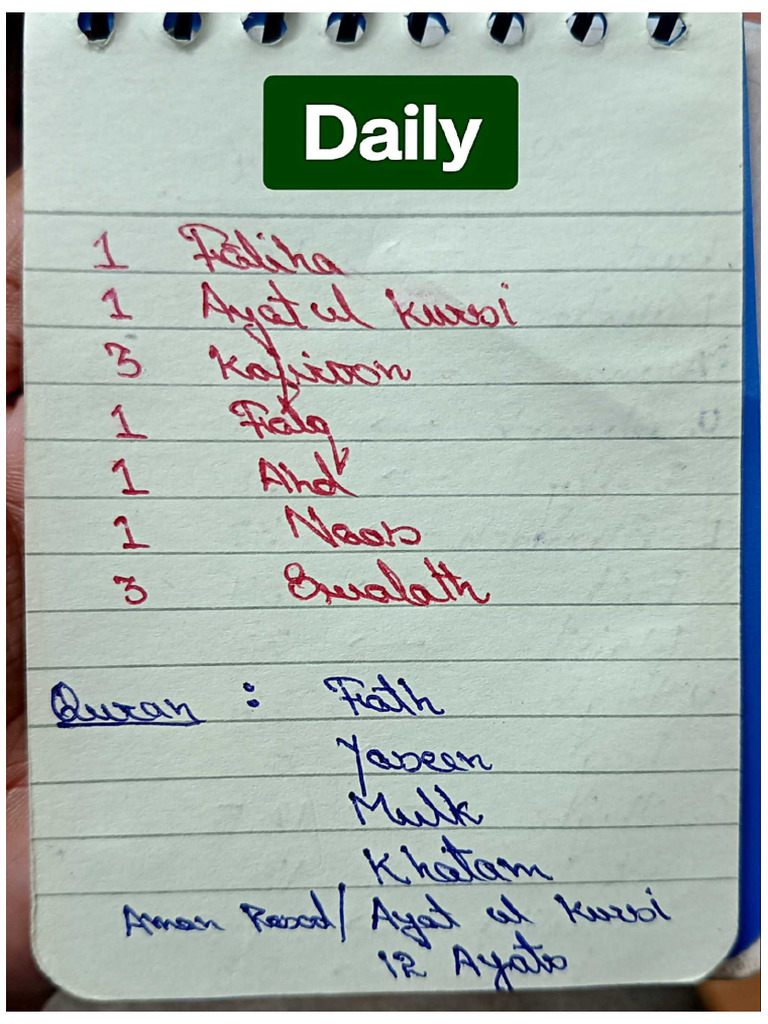 Daily
1 Fatiha
1 Ayat ul kursi
3 Kafiroon
1 Falq
1 Ahd
1 Naas
3 Swalath
Quran : Fath
Yaseen
Mulk
Khatam
Aman Rasod / Ayat ul Kursi
12 Ayats